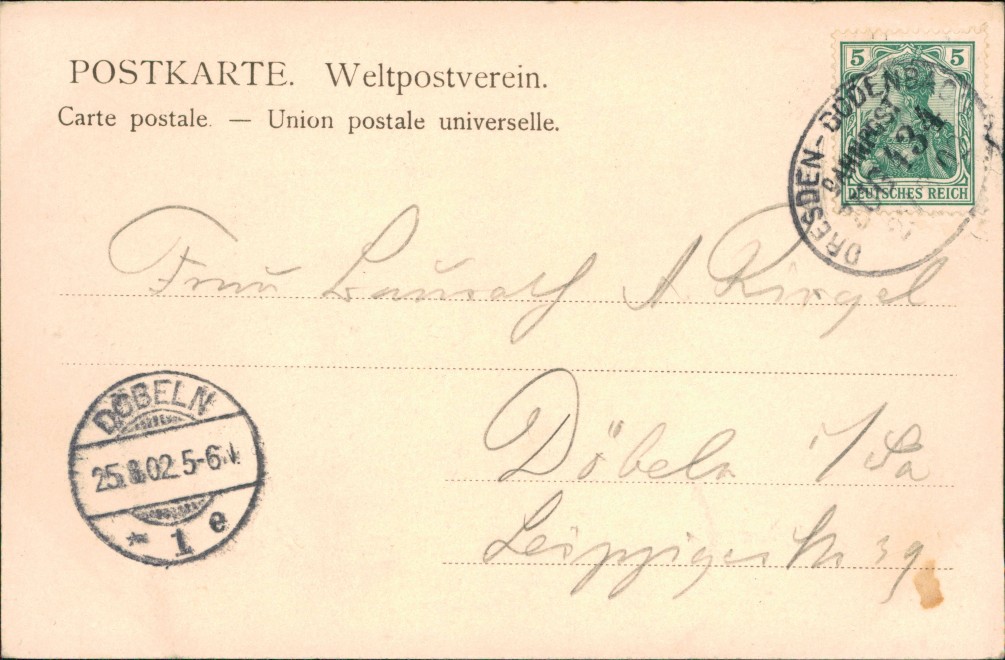 POSTKARTE. Weltpostverein.
Carte postale. — Union postale universelle.
5 5
DEUTSCHES REICH
DRESDEN - BODENBACH
BAHNPOST
ZUG 134
Frau Baurath A.
Döbeln i/Sa
Leipziger Str 39
DÖBELN
25.8.02 5-6 N
* 1 e